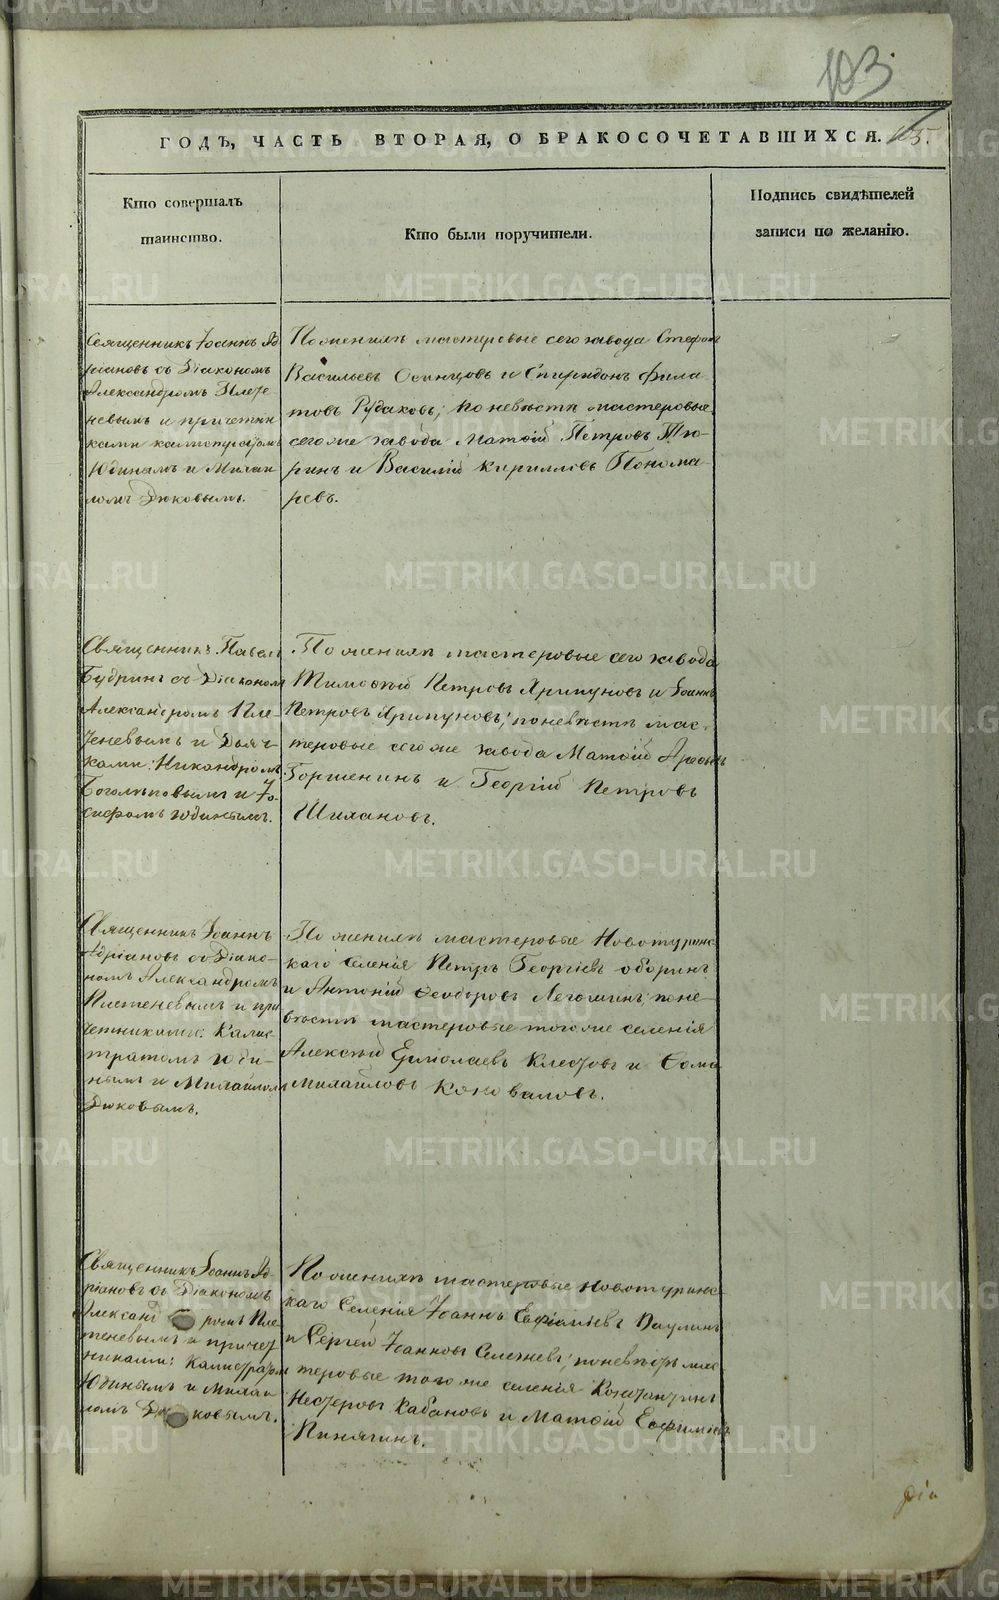 103
105.
ГОДЪ, ЧАСТЬ ВТОРАЯ, О БРАКОСОЧЕТАВШИХСЯ.
Кто совершалъ
таинство.
Кто были поручители.
Подпись свидѣтелей
записи по желанію.
Священникъ Іоаннъ Ад
ріановъ съ Діакономъ
Александромъ Плете
невымъ и причетни
ками Калистратомъ
Юдинымъ и Михаи
ломъ Дюковымъ.
По женихѣ мастеровые сего завода Стефанъ
Васильевъ Осинцовъ и Спиридонъ Фила
товъ Рудаковъ; по невѣстѣ мастеровые
сегоже завода Матѳій Петровъ Тю-
ринъ и Василій Кирилловъ Понома-
ревъ.
Священникъ Павелъ
Будринъ съ Діакономъ
Александромъ Пле-
теневымъ и Дьяч-
ками: Никандромъ
Боголѣповымъ и Іо-
сифомъ Юдинымъ.
По женихѣ мастеровые сего завода
Тимоѳей Петровъ Хрипуновъ и Іоаннъ
Петровъ Хрипуновъ; по невѣстѣ мас-
теровые сегоже завода Матѳій
Горшенинъ и Георгій Петровъ
Шихановъ.
Священникъ Іоаннъ
Адріановъ съ Діако-
номъ Александромъ
Плетеневымъ и при
четниками: Калис-
тратомъ Юди-
нымъ и Михаиломъ
Дюковымъ.
По женихѣ мастеровые Новотуринс-
каго селенія Петръ Георгіевъ Оборинъ
и Антоній Ѳеодоровъ Легошинъ; по не-
вѣстѣ мастеровые тогоже селенія
Алексѣй Ермолаевъ Клестовъ и Ѳома
Михайловъ Коноваловъ.
Священникъ Іоаннъ Ад-
ріановъ съ Діакономъ
Александромъ Пле-
теневымъ и причет
никами: Калистратомъ
Юдинымъ и Михаи
ломъ Дюковымъ.
По женихѣ мастеровые Новотуринс-
каго селенія Іоаннъ Евфиміевъ Паулинъ
и Сергей Іоанновъ Селезневъ; по невѣстѣ мас
теровые тогоже селенія Константинъ
Несторовъ Кабановъ и Матѳій Евфиміевъ
Пинягинъ.
METRIKI.GASO-URAL.RU